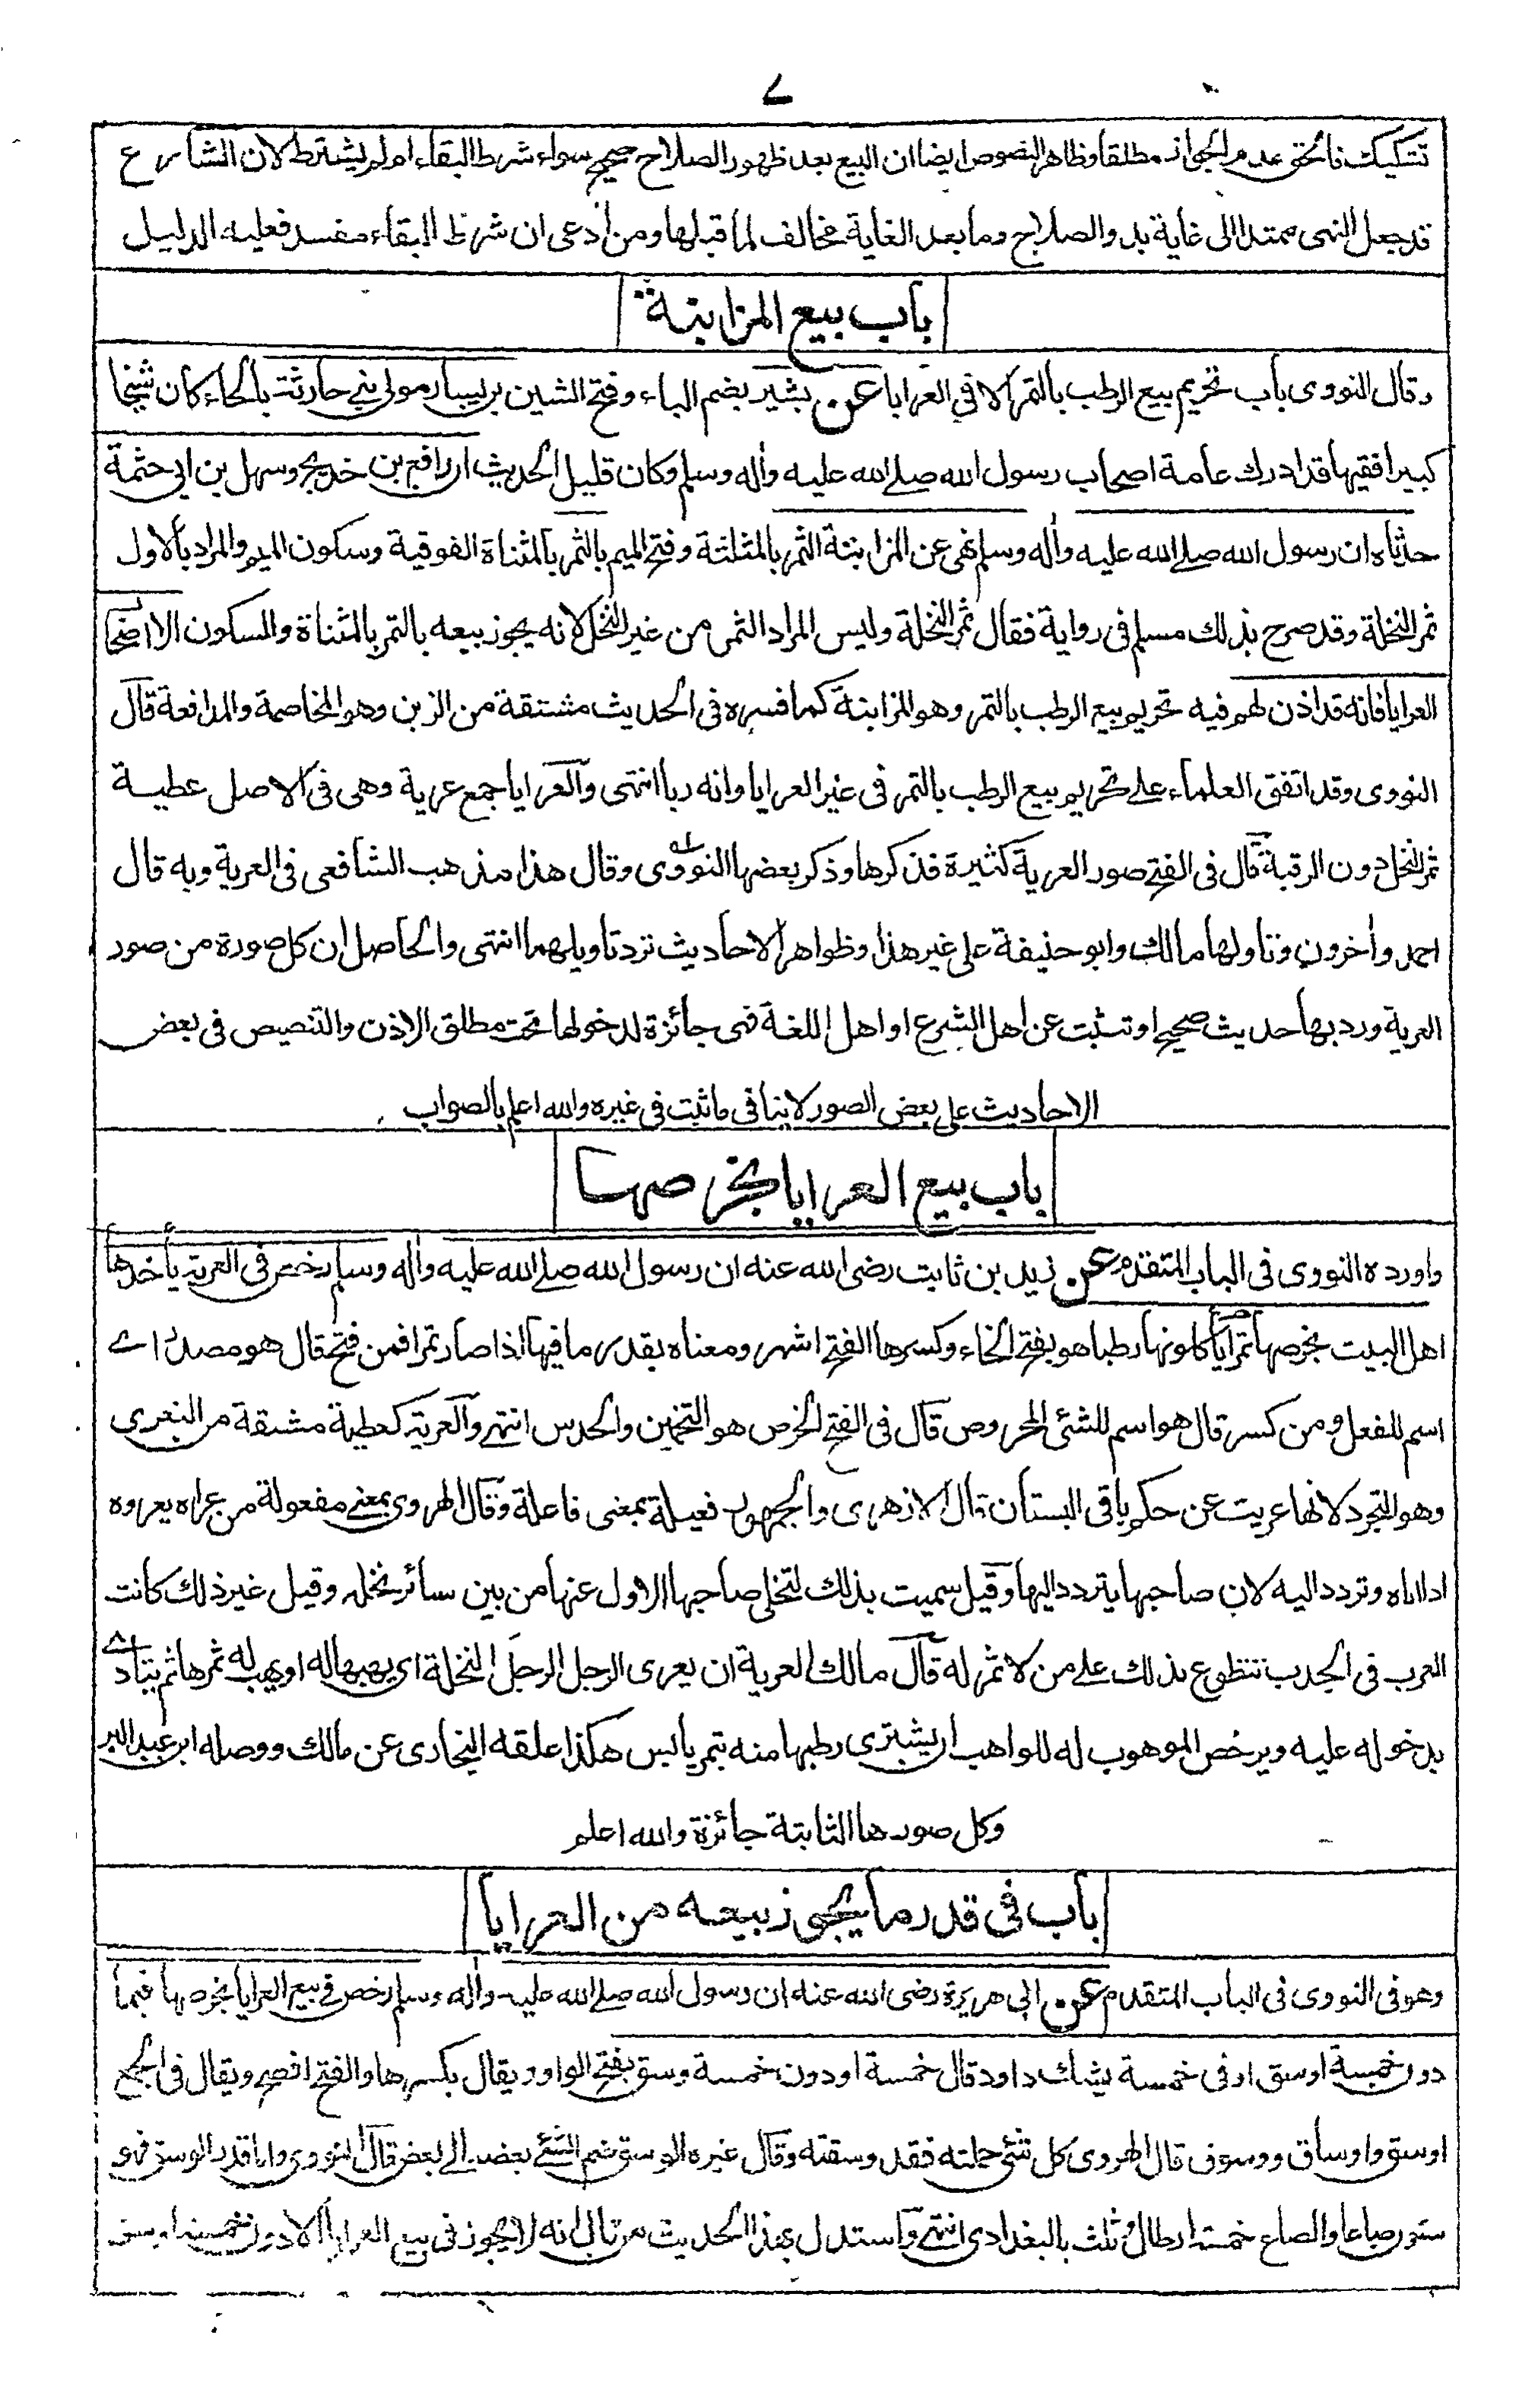 ٧
تشكيك فالحق عدم الجواز مطلقا وظاهر النصوص ايضا ان البيع بعد ظهور الصلاح صحيح سواء شرط البقاء ام لم يشترط لان الشارع
قد جعل النهى ممتدا الى غاية بدو الصلاح وما بعد الغاية مخالف لما قبلها ومن ادعى ان شرط البقاء مفسد فعليه الدليل
باب بيع المزابنة
وقال النووى باب تحريم بيع الرطب بالتمر الا فى العرايا عن بشير بضم الباء وفتح الشين بن يسار مولى بنى حارثة بالحاء كان شيخا
كبيرا فقيها قد ادرك عامة اصحاب رسول الله صلى الله عليه واٰله وسلم وكان قليل الحديث ان رافع بن خديج وسهل بن ابى حثمة
حدثاه ان رسول الله صلى الله عليه واٰله وسلم نهى عن المزابنة الثمر بالمثلثة وفتح الميم بالتمر بالمثناة الفوقية وسكون الميم والمراد بالاول
ثمر النخلة وقد صرح بذلك مسلم فى رواية فقال ثمر النخلة وليس المراد الثمر من غير النخل لانه يجوز بيعه بالتمر بالمثناة والسكون الا اصحاب
العرايا فانه قد اذن لهم فيه تحريم بيع الرطب بالتمر وهو المزابنة كما فسره فى الحديث مشتقة من الزبن وهو المخاصمة والمدافعة قال
النووى وقد اتفق العلماء على تحريم بيع الرطب بالتمر فى غير العرايا وانه ربا انتهى والعرايا جمع عرية وهى فى الاصل عطية
ثمر النخل دون الرقبة قال فى الفتح صور العرية كثيرة فذكرها وذكر بعضها النووى وقال هذا مذهب الشافعى فى العرية وبه قال
احمد واٰخرون وتاولها مالك وابو حنيفة على غير هذا وظواهر الاحاديث ترد تاويلهما انتهى والحاصل ان كل صورة من صور
العرية ورد بها حديث صحيح او ثبت عن اهل الشرع او اهل اللغة فهى جائزة لدخولها تحت مطلق الاذن والتنصيص فى بعض
الاحاديث على بعض الصور لا ينافى ما ثبت فى غيره والله اعلم بالصواب
باب بيع العرايا بخرصها
واورده النووى فى الباب المتقدم عن زيد بن ثابت رضى الله عنه ان رسول الله صلى الله عليه واٰله وسلم رخص فى العرية ياخذها
اهل البيت بخرصها تمرا ياكلونها رطبا هو بفتح الخاء وكسرها الفتح اشهر ومعناه بقدر ما فيها اذا صار تمرا فمن فتح قال هو مصدر اے
اسم للفعل ومن كسر قال هو اسم للشئ المخروص قال فى الفتح الخرص هو التخمين والحدس انتهى والعرية كعطية مشتقة من التعرى
وهو التجرد لانها عريت عن حكم باقى البستان قال الازهرى والجمهور فعيلة بمعنى فاعلة وقال الهروى بمعنى مفعولة من عراه يعروه
اذا اتاه وتردد اليه لان صاحبها يتردد اليها وقيل سميت بذلك لتخلى صاحبها الاول عنها من بين سائر نخله وقيل غير ذلك كانت
العرب فى الجدب تتطوع بذلك على من لا ثمر له قال مالك العرية ان يعرى الرجل الرجل النخلة اى يهبها له او يهب له ثمرها ثم يتاذى
بدخوله عليه ويرخص الموهوب له للواهب ان يشترى رطبها منه بتمر يابس هكذا علقه البخارى عن مالك ووصله ابن عبد البر
وكل صورها الثابتة جائزة والله اعلم
باب فى قدر ما يجوز بيعه من العرايا
وهو فى النووى فى الباب المتقدم عن ابى هريرة رضى الله عنه ان رسول الله صلى الله عليه واٰله وسلم رخص فى بيع العرايا بخرصها فيما
دون خمسة اوسق او فى خمسة يشك داود قال خمسة او دون خمسة وسق بفتح الواو ويقال بكسرها والفتح افصح ويقال فى الجمع
اوسق واوساق ووسوق قال الهروى كل شئ حملته فقد وسقته وقال غيره الوسق ضم الشئ بعضه الى بعض قال النووى واما قدر الوسق فهو
ستون صاعا والصاع خمسة ارطال وثلث بالبغدادى انتهى واستدل بهذا الحديث من قال انه لا يجوز فى بيع العرايا الا دون خمسة اوسق